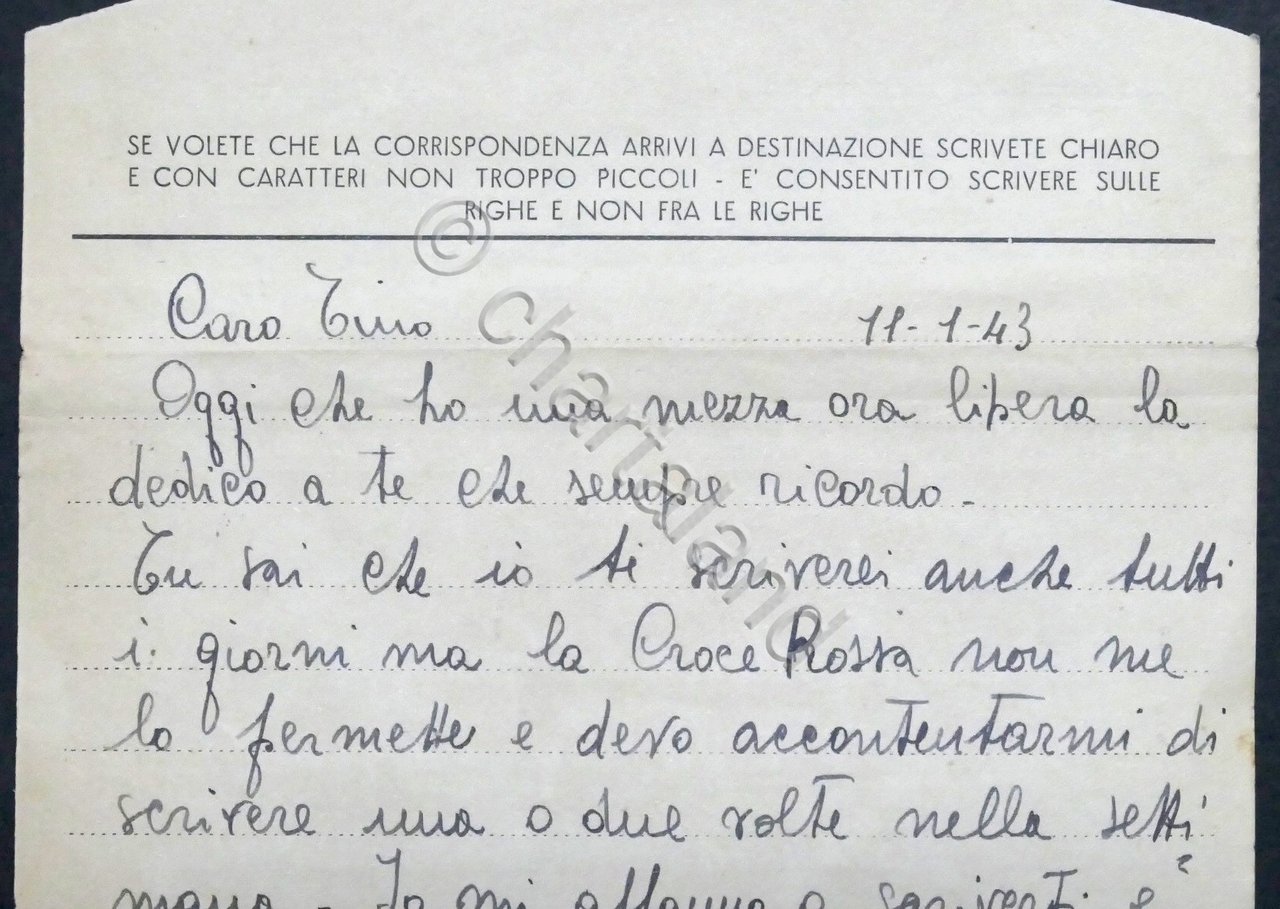 SE VOLETE CHE LA CORRISPONDENZA ARRIVI A DESTINAZIONE SCRIVETE CHIARO
E CON CARATTERI NON TROPPO PICCOLI - E' CONSENTITO SCRIVERE SULLE
RIGHE E NON FRA LE RIGHE
Caro Tino 11-1-43
Oggi che ho una mezza ora lipera la
dedico a te che sempre ricordo -
Tu sai che io ti scriverei anche tutti
i giorni ma la Croce Rossa non me
lo permette e devo accontentarmi di
scrivere una o due volte nella setti
mana - Io mi affanno a scriverti e
© chartaland